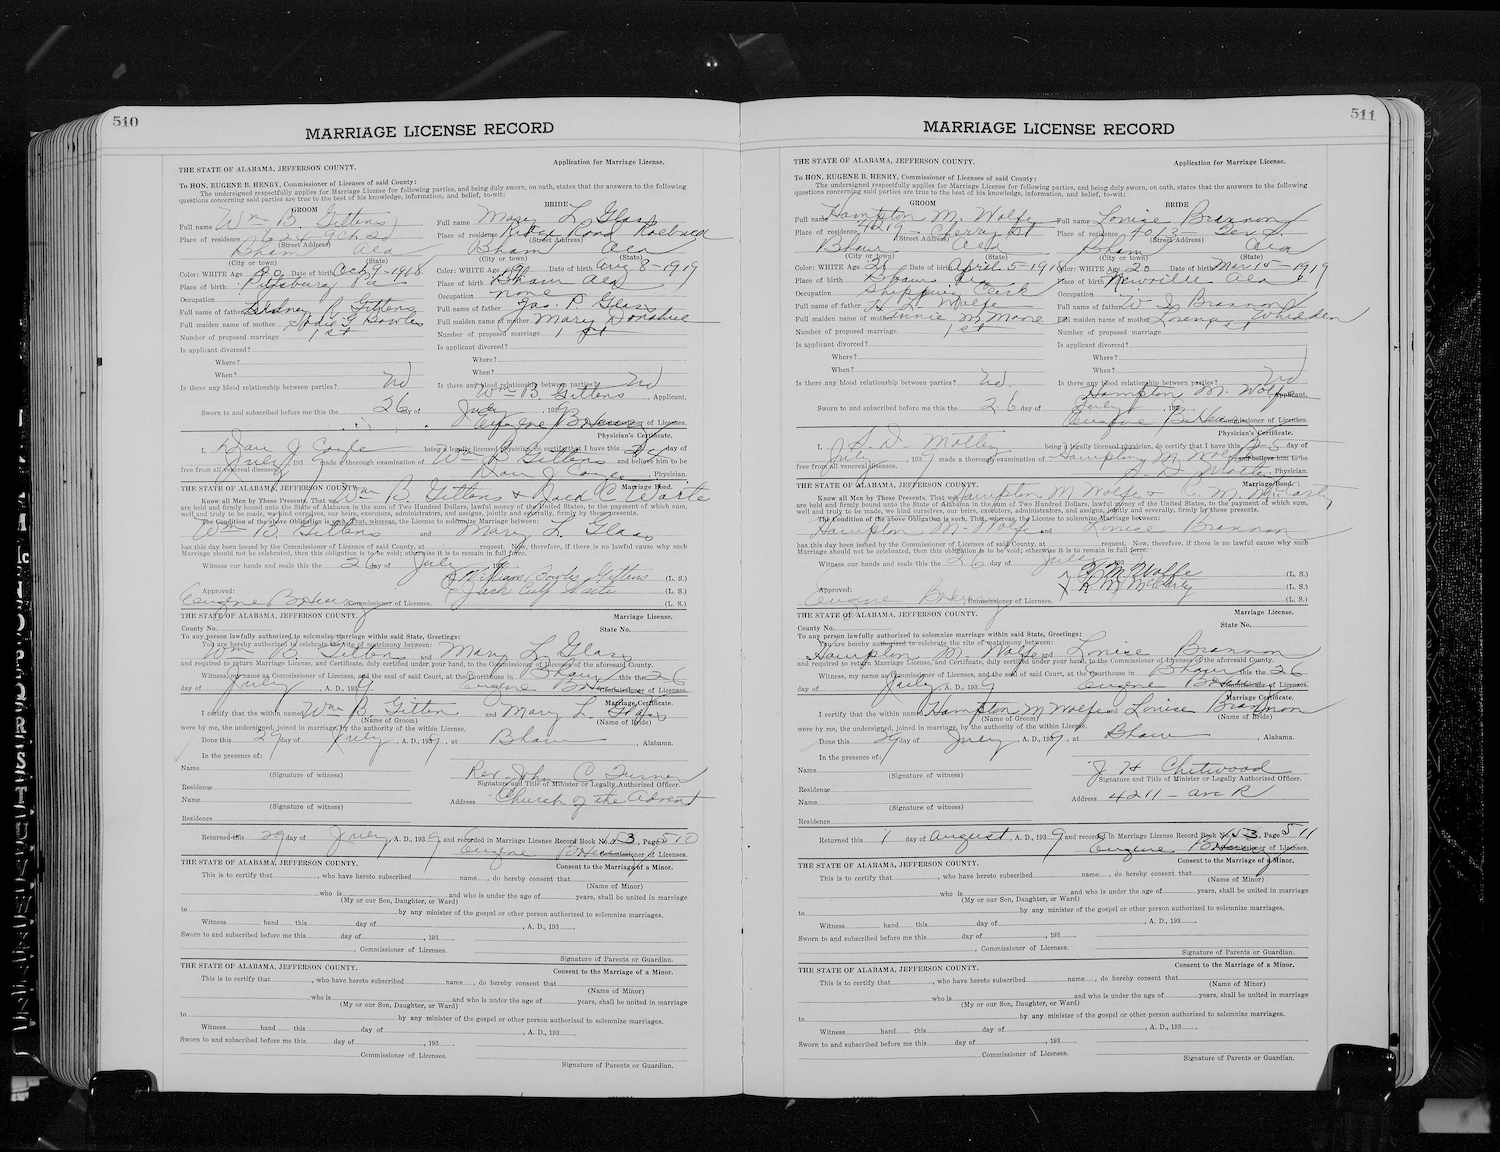 510
MARRIAGE LICENSE RECORD
THE STATE OF ALABAMA, JEFFERSON COUNTY.
Application for Marriage License.
To HON. EUGENE B. HENRY, Commissioner of Licenses of said County:
The undersigned respectfully applies for Marriage License for following parties, and being duly sworn, on oath, states that the answers to the following
questions concerning said parties are true to the best of his knowledge, information, and belief, to-wit:
GROOM
Full name Wm B. Gittens
Place of residence 7624 9th
(Street Address)
Bham Ala
(City or town) (State)
Color: WHITE Age 20 Date of birth Oct 9-1918
Place of birth Pittsburg Pa
Occupation
Full name of father Sidney R Gittens
Full maiden name of mother Bowles
Number of proposed marriage 1st
Is applicant divorced?
Where?
When?
Is there any blood relationship between parties? No
BRIDE
Full name Mary L Glass
Place of residence Ridge Road Roebuck
(Street Address)
Bham Ala
(City or town) (State)
Color: WHITE Age 19 Date of birth Aug 8-1919
Place of birth Bham Ala
Occupation none
Full name of father Jas. P Glass
Full maiden name of mother Mary Donahue
Number of proposed marriage 1st
Is applicant divorced?
Where?
When?
Is there any blood relationship between parties? No
Wm B. Gittens Applicant.
Sworn to and subscribed before me this the 26 day of July, 1939
Eugene B Henry Commissioner of Licenses.
Physician's Certificate.
I, Dan J Coyle being a legally licensed physician, do certify that I have this day of
July 193 made a thorough examination of Wm B Gittens and believe him to be
free from all venereal diseases. Dan Coyle, Physician.
THE STATE OF ALABAMA, JEFFERSON COUNTY.
Marriage Bond.
Know all Men by These Presents, That we Wm B. Gittens & Jack C Waite
are held and firmly bound unto the State of Alabama in the sum of Two Hundred Dollars, lawful money of the United States, to the payment of which sum,
well and truly to be made, we bind ourselves, our heirs, executors, administrators, and assigns, jointly and severally, firmly by these presents.
The Condition of the above Obligation is such, That, whereas, the License to solemnize Marriage between:
Wm B. Gittens and Mary L. Glass
has this day been issued by the Commissioner of Licenses of said County, at request. Now, therefore, if there is no lawful cause why such
Marriage should not be celebrated, then this obligation is to be void; otherwise it is to remain in full force.
Witness our hands and seals this the 26 day of July, 193
William Bowles Gittens (L. S.)
Approved: Jack Culp Waite (L. S.)
Eugene B Henry Commissioner of Licenses. (L. S.)
THE STATE OF ALABAMA, JEFFERSON COUNTY.
Marriage License.
County No. State No.
To any person lawfully authorized to solemnize marriage within said State, Greetings:
You are hereby authorized to celebrate the rite of matrimony between:
Wm B. Gittens and Mary L Glass
and required to return Marriage License, and Certificate, duly certified under your hand, to the Commissioner of Licenses of the aforesaid County.
Witness, my name as Commissioner of Licenses, and the seal of said Court, at the Courthouse in Bham this the 26
day of July, A. D., 1939 Eugene B Henry Commissioner of Licenses.
Marriage Certificate.
I certify that the within named Wm B Gittens and Mary L Glass
(Name of Groom) (Name of Bride)
were by me, the undersigned, joined in marriage, by the authority of the within License.
Done this 29 day of July, A. D., 1939, at Bham, Alabama.
In the presence of:
Name
(Signature of witness)
Rev. John C Turner
Signature and Title of Minister or Legally Authorized Officer.
Residense
Address Church of the Advent
Name
(Signature of witness)
Residence
Returned this 29 day of July, A. D., 1939 and recorded in Marriage License Record Book No. 153, Page 510
Eugene B Henry Commissioner of Licenses.
THE STATE OF ALABAMA, JEFFERSON COUNTY.
Consent to the Marriage of a Minor.
This is to certify that, who have hereto subscribed name, do hereby consent that
(Name of Minor)
who is and who is under the age of years, shall be united in marriage
(My or our Son, Daughter, or Ward)
to by any minister of the gospel or other person authorized to solemnize marriages.
Witness hand this day of, A. D., 193
Sworn to and subscribed before me this day of, 193
, Commissioner of Licenses.
Signature of Parents or Guardian.
THE STATE OF ALABAMA, JEFFERSON COUNTY.
Consent to the Marriage of a Minor.
This is to certify that, who have hereto subscribed name, do hereby consent that
(Name of Minor)
who is and who is under the age of years, shall be united in marriage
(My or our Son, Daughter, or Ward)
to by any minister of the gospel or other person authorized to solemnize marriages.
Witness hand this day of, A. D., 193
Sworn to and subscribed before me this day of, 193
Commissioner of Licenses.
Signature of Parents or Guardian.
511
MARRIAGE LICENSE RECORD
THE STATE OF ALABAMA, JEFFERSON COUNTY.
Application for Marriage License.
To HON. EUGENE B. HENRY, Commissioner of Licenses of said County:
The undersigned respectfully applies for Marriage License for following parties, and being duly sworn, on oath, states that the answers to the following
questions concerning said parties are true to the best of his knowledge, information, and belief, to-wit:
GROOM
Full name Hampton M. Wolfe
Place of residence 4219 Cherry St
(Street Address)
Bham Ala
(City or town) (State)
Color: WHITE Age 23 Date of birth April 5-1916
Place of birth Bham Ala
Occupation Shipping Clerk
Full name of father H. Wolfe
Full maiden name of mother Annie M. Moore
Number of proposed marriage 1st
Is applicant divorced?
Where?
When?
Is there any blood relationship between parties? No.
BRIDE
Full name Lonise Brannon
Place of residence 4013 Ter S.
(Street Address)
Bham Ala
(City or town) (State)
Color: WHITE Age 20 Date of birth Mar 15-1919
Place of birth Newville Ala
Occupation
Full name of father W I Brannon
Full maiden name of mother Lorena Whidden
Number of proposed marriage 1st
Is applicant divorced?
Where?
When?
Is there any blood relationship between parties? No
Hampton M. Wolfe Applicant.
Sworn to and subscribed before me this the 26 day of July, 193
Eugene B Henry Commissioner of Licenses.
Physician's Certificate.
I, S D Motley being a legally licensed physician, do certify that I have this 25 day of
July, 1939 made a thorough examination of Hampton M. Wolfe and believe him to be
free from all venereal diseases. S D Motley Physician.
THE STATE OF ALABAMA, JEFFERSON COUNTY.
Marriage Bond.
Know all Men by These Presents, That we Hampton M Wolfe & R. M. McCarty
are held and firmly bound unto the State of Alabama in the sum of Two Hundred Dollars, lawful money of the United States, to the payment of which sum,
well and truly to be made, we bind ourselves, our heirs, executors, administrators, and assigns, jointly and severally, firmly by these presents.
The Condition of the above Obligation is such, That, whereas, the License to solemnize Marriage between:
Hampton M. Wolfe and Lonise Brannon
has this day been issued by the Commissioner of Licenses of said County, at request. Now, therefore, if there is no lawful cause why such
Marriage should not be celebrated, then this obligation is to be void; otherwise it is to remain in full force.
Witness our hands and seals this the 26 day of July, 193
H M Wolfe (L. S.)
Approved: R M McCarty (L. S.)
Eugene B Henry Commissioner of Licenses. (L. S.)
THE STATE OF ALABAMA, JEFFERSON COUNTY.
Marriage License.
County No. State No.
To any person lawfully authorized to solemnize marriage within said State, Greetings:
You are hereby authorized to celebrate the rite of matrimony between:
Hampton M. Wolfe & Lonise Brannon
and required to return Marriage License, and Certificate, duly certified under your hand, to the Commissioner of Licenses of the aforesaid County.
Witness, my name as Commissioner of Licenses, and the seal of said Court, at the Courthouse in Bham this the 26
day of July, A. D., 1939 Eugene B Henry Commissioner of Licenses.
Marriage Certificate.
I certify that the within named Hampton M Wolfe & Lonise Brannon
(Name of Groom) (Name of Bride)
were by me, the undersigned, joined in marriage, by the authority of the within License.
Done this 29 day of July, A. D., 1939, at Bham, Alabama.
In the presence of:
Name
(Signature of witness)
J H Chitwood
Signature and Title of Minister or Legally Authorized Officer.
Residense
Address 4211 - Ave R
Name
(Signature of witness)
Residence
Returned this 1 day of August, A. D., 1939 and recorded in Marriage License Record Book No. 153, Page 511
Eugene B Henry Commissioner of Licenses.
THE STATE OF ALABAMA, JEFFERSON COUNTY.
Consent to the Marriage of a Minor.
This is to certify that, who have hereto subscribed name, do hereby consent that
(Name of Minor)
who is and who is under the age of years, shall be united in marriage
(My or our Son, Daughter, or Ward)
to by any minister of the gospel or other person authorized to solemnize marriages.
Witness hand this day of, A. D., 193
Sworn to and subscribed before me this day of, 193
, Commissioner of Licenses.
Signature of Parents or Guardian.
THE STATE OF ALABAMA, JEFFERSON COUNTY.
Consent to the Marriage of a Minor.
This is to certify that, who have hereto subscribed name, do hereby consent that
(Name of Minor)
who is and who is under the age of years, shall be united in marriage
(My or our Son, Daughter, or Ward)
to by any minister of the gospel or other person authorized to solemnize marriages.
Witness hand this day of, A. D., 193
Sworn to and subscribed before me this day of, 193
, Commissioner of Licenses.
Signature of Parents or Guardian.